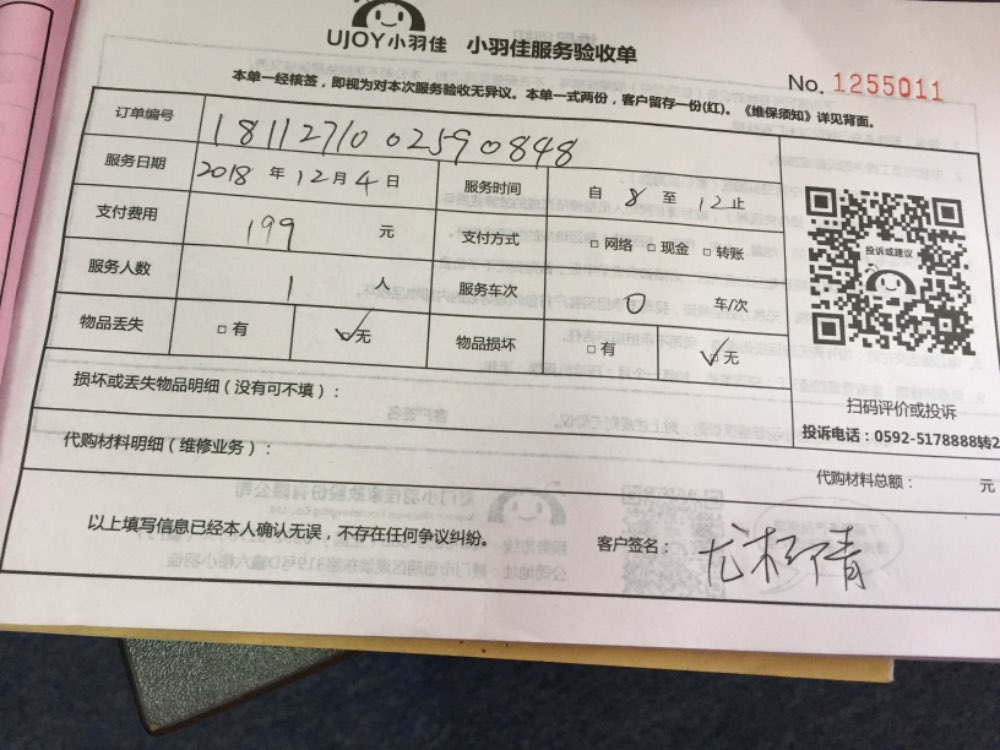 UJOY小羽佳 小羽佳服务验收单
No. 1255011
本单一经核签，即视为对本次服务验收无异议。本单一式两份，客户留存一份(红)。《维保须知》详见背面。
订单编号 18112710 02590848
服务日期 2018 年 12 月 4 日 服务时间 自 8 至 12 止
支付费用 199 元 支付方式 □ 网络 □ 现金 □ 转账
服务人数 1 人 服务车次 0 车/次
物品丢失 □ 有 ☑无 物品损坏 □ 有 ☑无
投诉或建议
扫码评价或投诉
投诉电话：0592-5178888转2
损坏或丢失物品明细（没有可不填）：
代购材料明细（维修业务）：
代购材料总额： 元
以上填写信息已经本人确认无误，不存在任何争议纠纷。
客户签名：尤杉倩